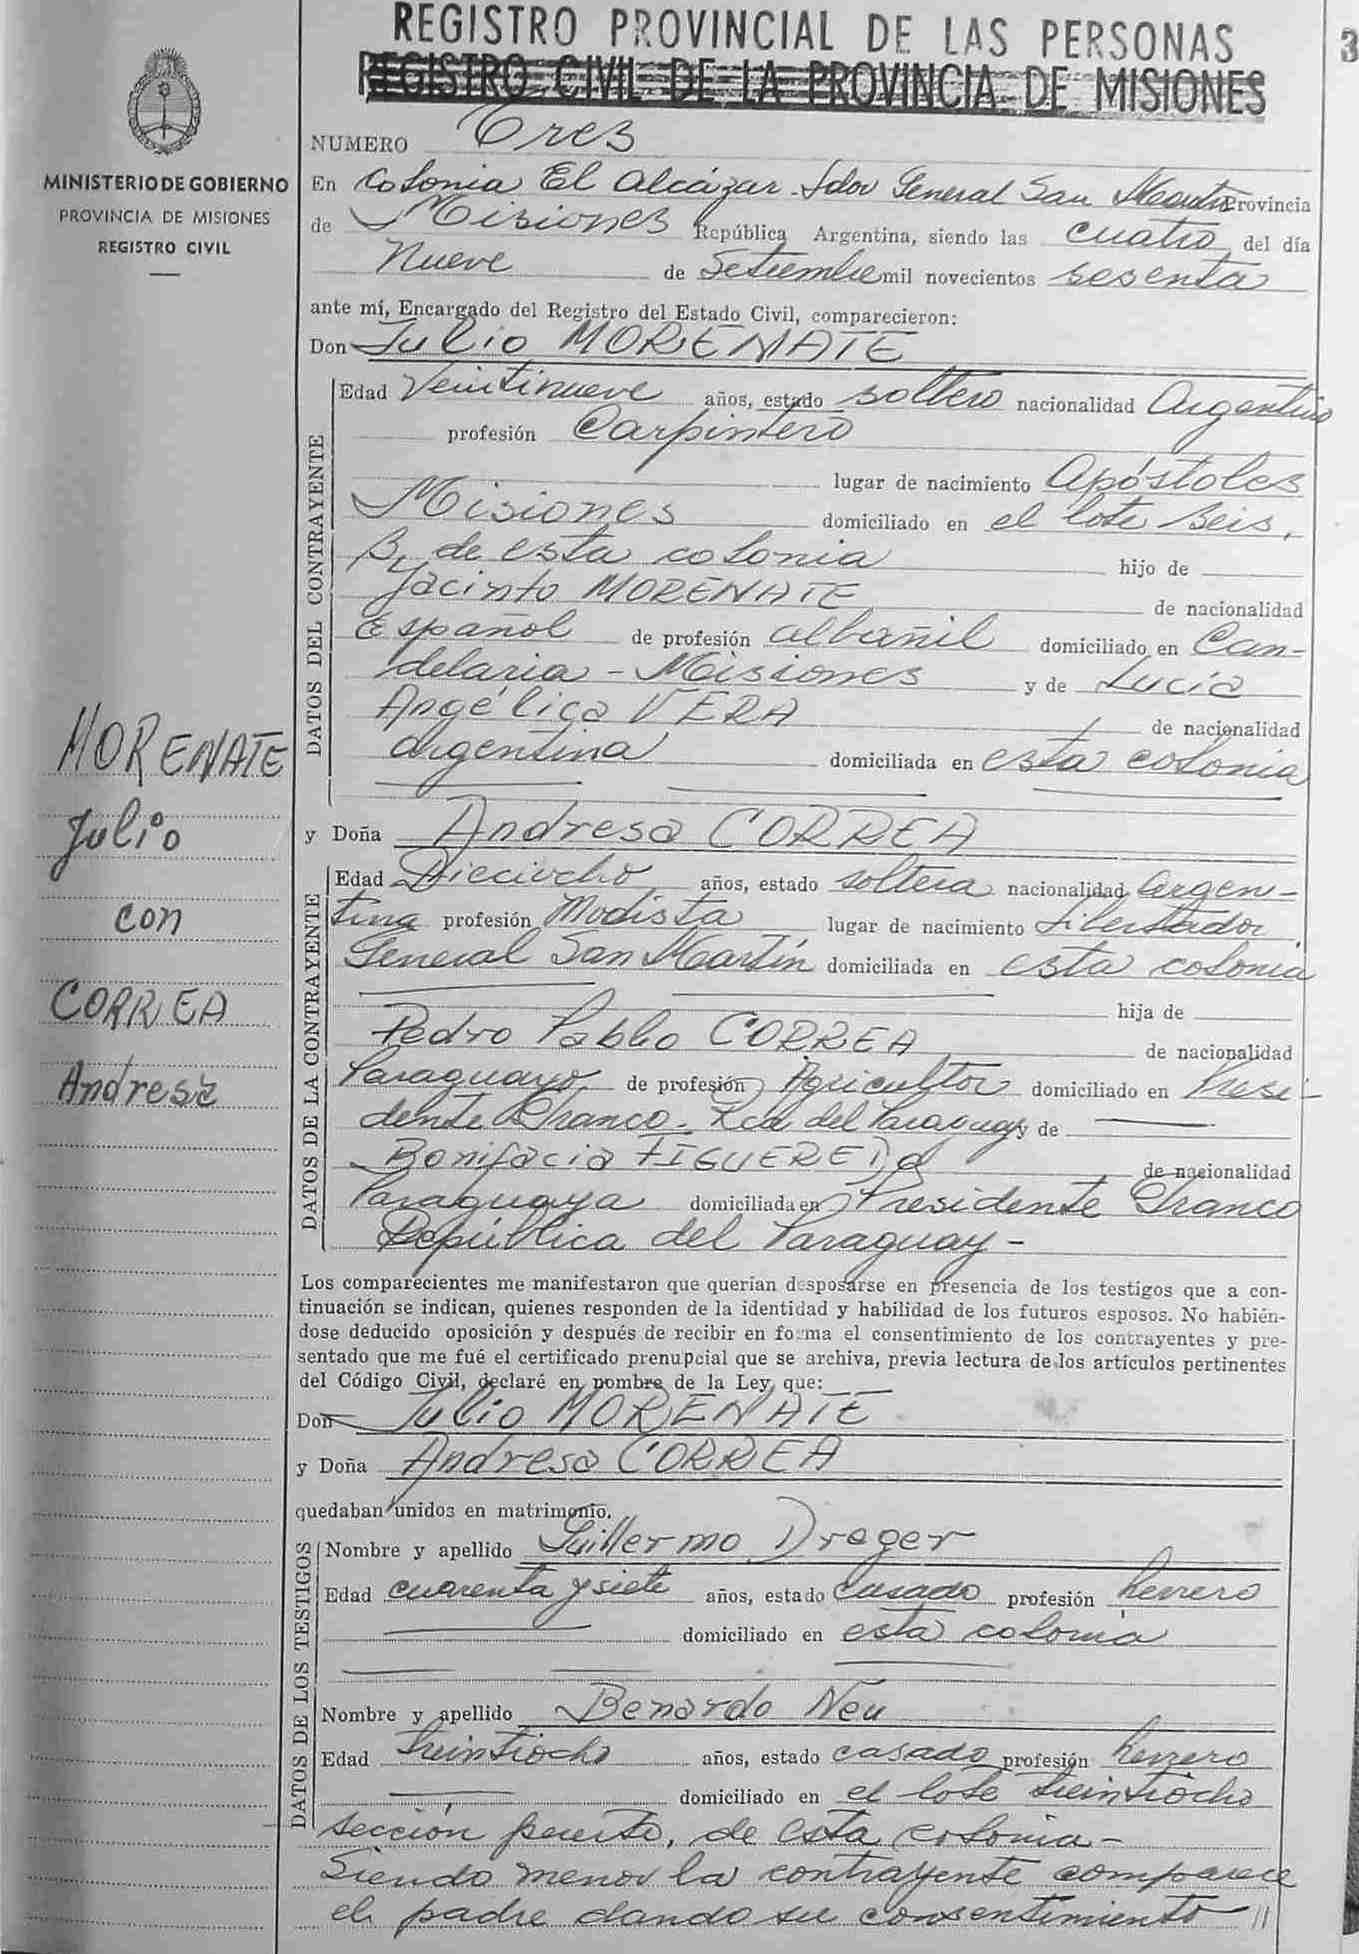 REGISTRO PROVINCIAL DE LAS PERSONAS
3
REGISTRO CIVIL DE LA PROVINCIA DE MISIONES
MINISTERIO DE GOBIERNO
PROVINCIA DE MISIONES
REGISTRO CIVIL
NUMERO Tres
En Colonia El Alcázar Ldor General San Martín Provincia
de Misiones República Argentina, siendo las cuatro del día
Nueve de Setiembre mil novecientos sesenta
ante mí, Encargado del Registro del Estado Civil, comparecieron:
Don Julio MORENATE
DATOS DEL CONTRAYENTE
Edad Veintinueve años, estado soltero nacionalidad Argentino
profesión Carpintero
lugar de nacimiento Apóstoles
Misiones domiciliado en el lote seis,
B, de esta colonia hijo de
Jacinto MORENATE de nacionalidad
Español de profesión albañil domiciliado en Can-
delaria - Misiones y de Lucía
Angélica VERA de nacionalidad
argentina domiciliada en esta colonia
y Doña Andresa CORREA
DATOS DE LA CONTRAYENTE
Edad Dieciocho años, estado soltera nacionalidad argen-
tina profesión Modista lugar de nacimiento Libertador
General San Martín domiciliada en esta colonia
hija de
Pedro Pablo CORREA de nacionalidad
Paraguayo de profesión Agricultor domiciliado en Presi-
dente Franco - Rca del Paraguay y de
Bonifacia FIGUEREDO de nacionalidad
Paraguaya domiciliada en Presidente Franco
República del Paraguay -
MORENATE
Julio
con
CORREA
Andresa
Los comparecientes me manifestaron que querían desposarse en presencia de los testigos que a con-
tinuación se indican, quienes responden de la identidad y habilidad de los futuros esposos. No habién-
dose deducido oposición y después de recibir en forma el consentimiento de los contrayentes y pre-
sentado que me fué el certificado prenupcial que se archiva, previa lectura de los artículos pertinentes
del Código Civil, declaré en nombre de la Ley, que:
Don Julio MORENATE
y Doña Andresa CORREA
quedaban unidos en matrimonio.
DATOS DE LOS TESTIGOS
Nombre y apellido Guillermo Dreger
Edad cuarenta y siete años, estado casado profesión herrero
domiciliado en esta colonia
Nombre y apellido Benardo Neu
Edad treintiocho años, estado casado profesión herrero
domiciliado en el lote treintiocho
sección puerto, de esta colonia -
Siendo menor la contrayente comparece
el padre dando su consentimiento //